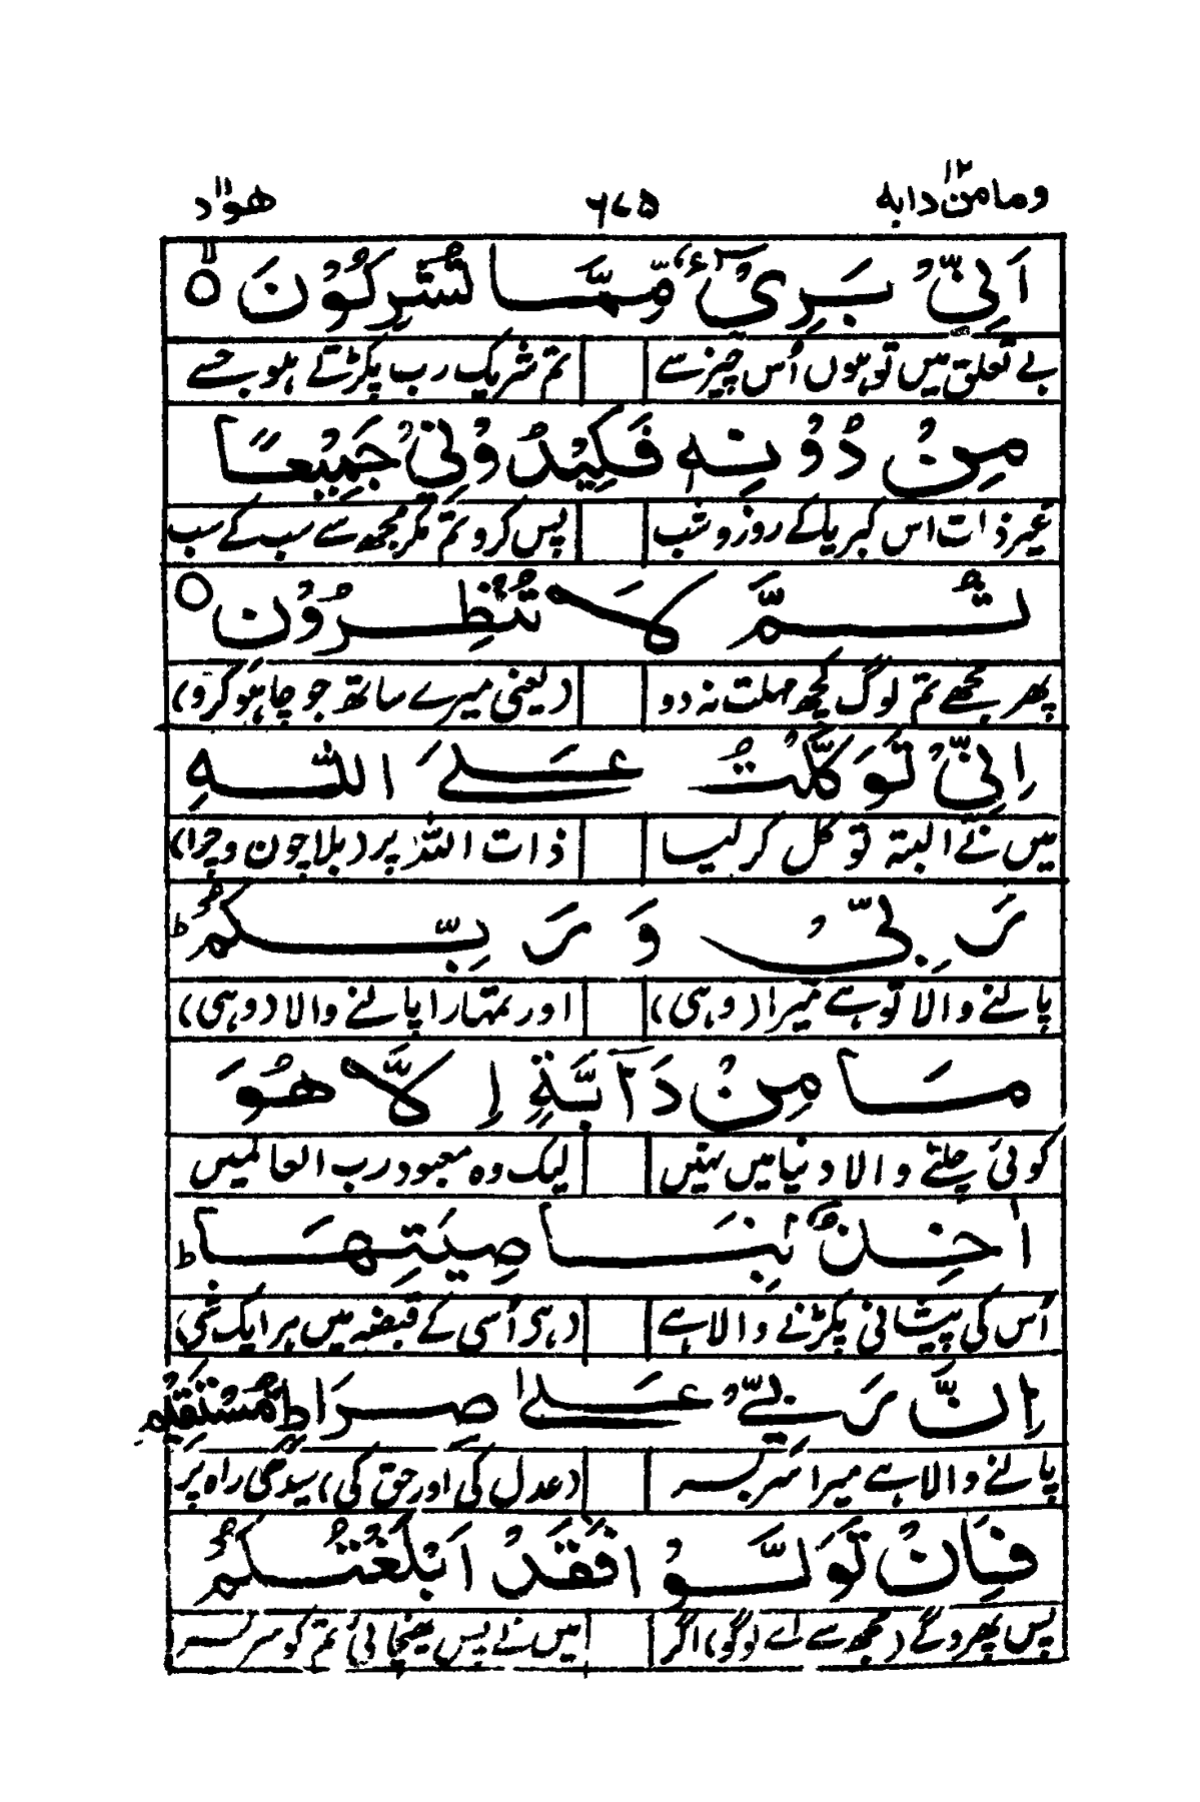 وما من دابہ ۱۲ ۶۷۵ ھود ۱۱
اَنِّیْ بَرِیْٓءٌ مِّمَّا تُشْرِکُوْنَ ۙ○
بے تعلق میں تو ہوں اُس چیز سے تم شریک رب پکڑتے ہو جسے
مِنْ دُوْنِہٖ فَکِیْدُوْنِیْ جَمِیْعًا
غیر ذات اس کبریا کے روز و شب پس کرو تم مکر مجھ سے سب کے سب
ثُمَّ لَا تُنْظِرُوْنِ ○
پھر مجھے تم لوگ کچھ مہلت نہ دو (یعنی میرے ساتھ جو چاہو کرو)
اِنِّیْ تَوَکَّلْتُ عَلَی اللّٰہِ
میں نے البتہ توکل کر لیا ذات اللہ پر (بلا چون و چرا)
رَبِّیْ وَ رَبِّکُمْ ؕ
پالنے والا تو ہے میرا (وہی) اور تمہارا پالنے والا (وہی)
مَا مِنْ دَآبَّۃٍ اِلَّا ھُوَ
کوئی چلنے والا دنیا میں نہیں لیک وہ معبود رب العالمیں
اٰخِذٌۢ بِنَاصِیَتِھَا ؕ
اُس کی پیشانی پکڑنے والا ہے (ہی اُسی کے قبضہ میں ہر ایک شی)
اِنَّ رَبِّیْ عَلٰی صِرَاطٍ مُّسْتَقِیْمٍ
پالنے والا ہے میرا سر بسر (عدل کی اور حق کی) سیدھی راہ پر
فَاِنْ تَوَلَّوْا فَقَدْ اَبْلَغْتُکُمْ
پس پھرو گے (مجھ سے اے لوگو) اگر میں نے بس پہنچا دی تم کو سربسر